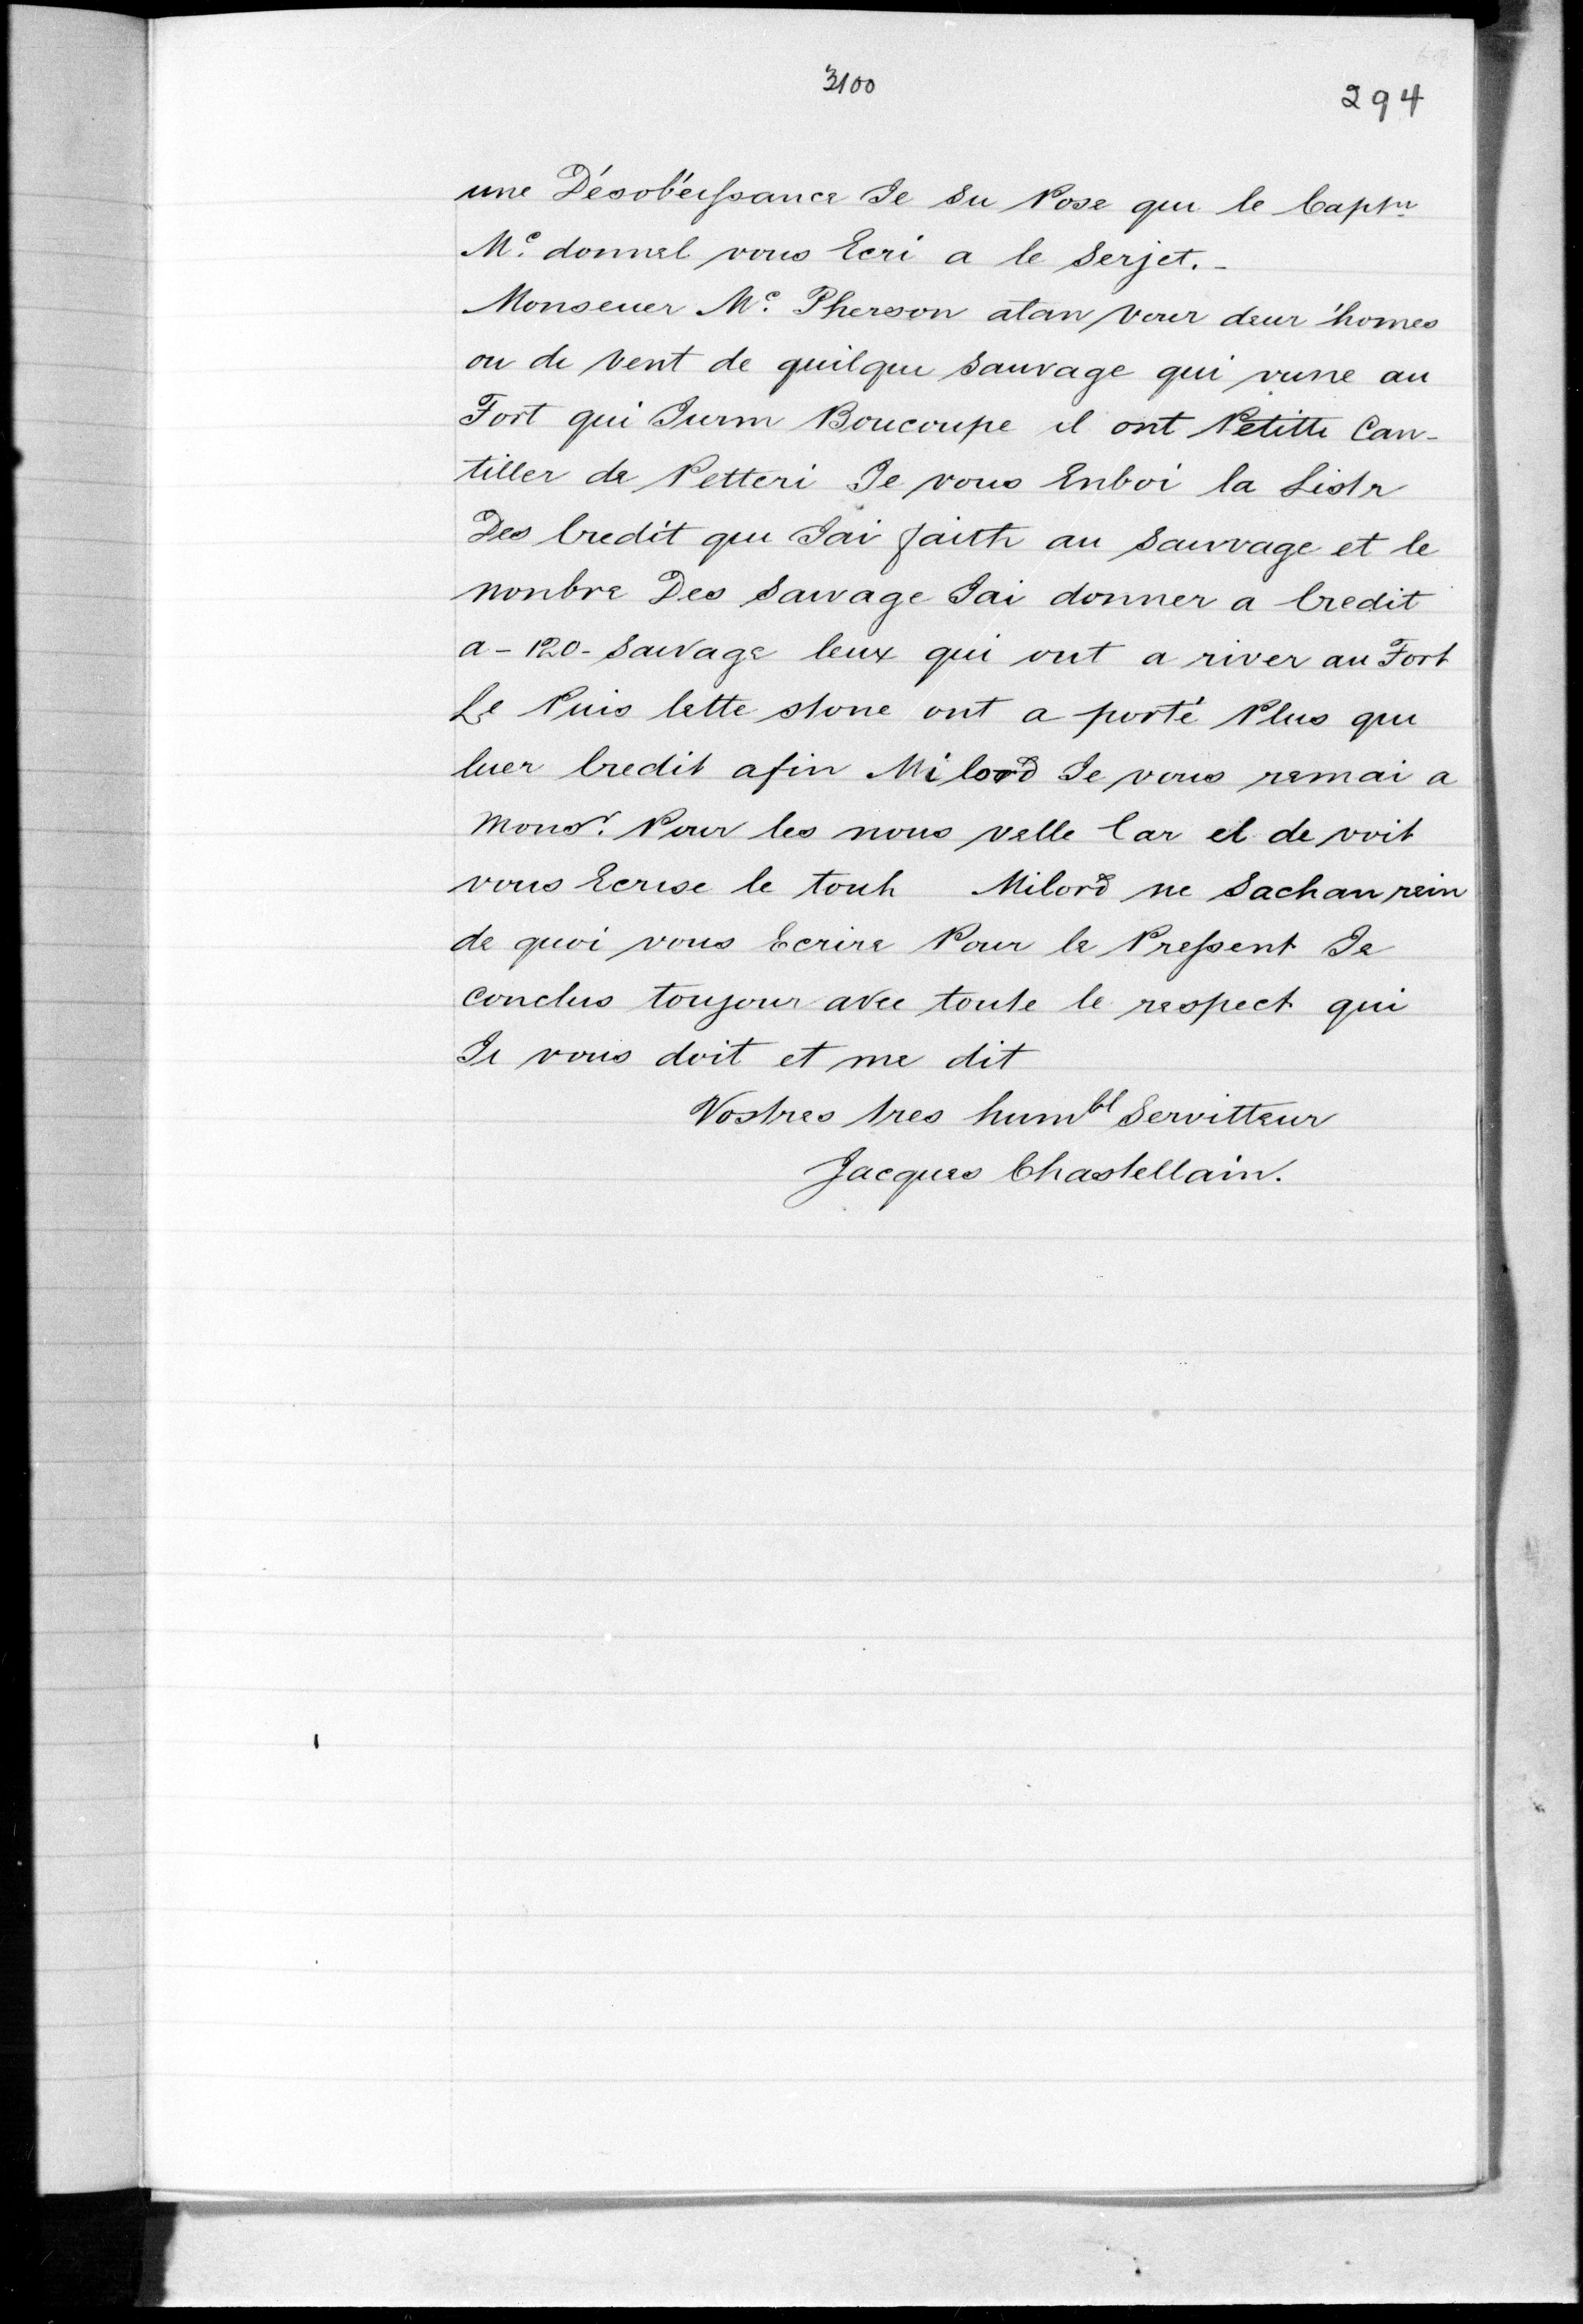 3100
294
une Désobéissance Je Su Pose qu le Captn
Mc. donnel vous Ecri a le Serjet.-
Monseuer Mc. Pherson atan verer deur homes
ou de vent de quilque Sauvage qui vune au
Fort qui Jurm Boucoupe il ont Petitte Can-
tiller de Petteri Je vous Enboi la Listr
Des Credit qu Jai faith au Sauvage et le
nonbre Des Sauvage Jai donner a Credit
a - 120 - Sauvage Ceux qui ont a river au Fort
Le Puis Cette stone ont a porté Plus qu
luer Credit afin Milord Je vous remai a
Monsr. Pour les nous velle Car el de voit
vous Ecrise le touh Milord ne Sachan rein
de quoi vous Ecrire Pour le Pressent Je
conclus toujour avec toute le respect qui
Je vous doit et me dit
Vostres tres humbl Servitteur
Jacques Chastellain.